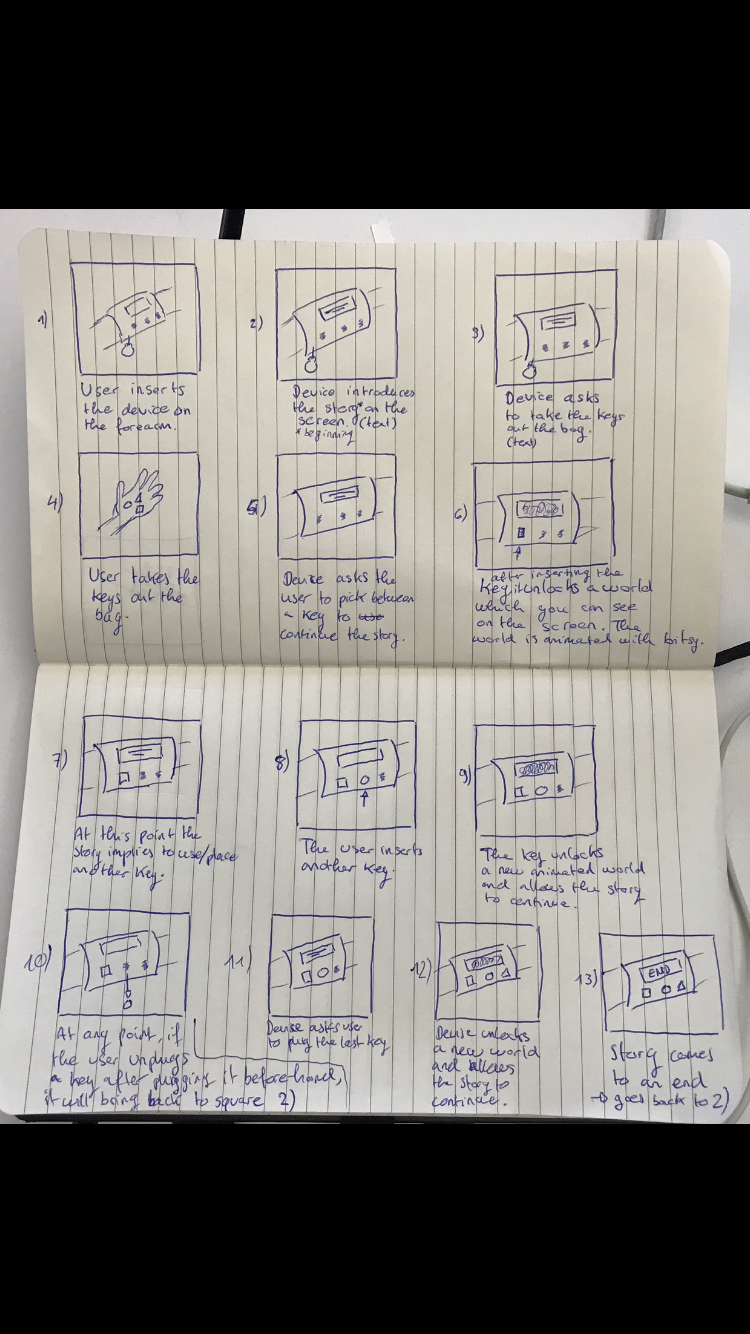 1)
User inserts
the device on
the forearm.
2)
Device introduces
the story* on the
screen. (text)
*beginning
3)
Device asks
to take the keys
out the bag.
(text)
4)
User takes the
keys out the
bag.
5)
Device asks the
user to pick between
a key to
continue the story.
6)
after inserting the
key it unlocks a world
which you can see
on the screen. The
world is animated with bitsy.
7)
At this point the
story implies to use/place
another key.
8)
The user inserts
another key.
9)
The key unlocks
a new animated world
and allows the story
to continue.
10)
At any point, if
the user unplugs
a key after plugging it before-hand,
it will bring back to square 2)
11)
Device asks user
to plug the last key
12)
Device unlocks
a new world
and allows
the story to
continue.
13)
END
Story comes
to an end
→ goes back to 2)